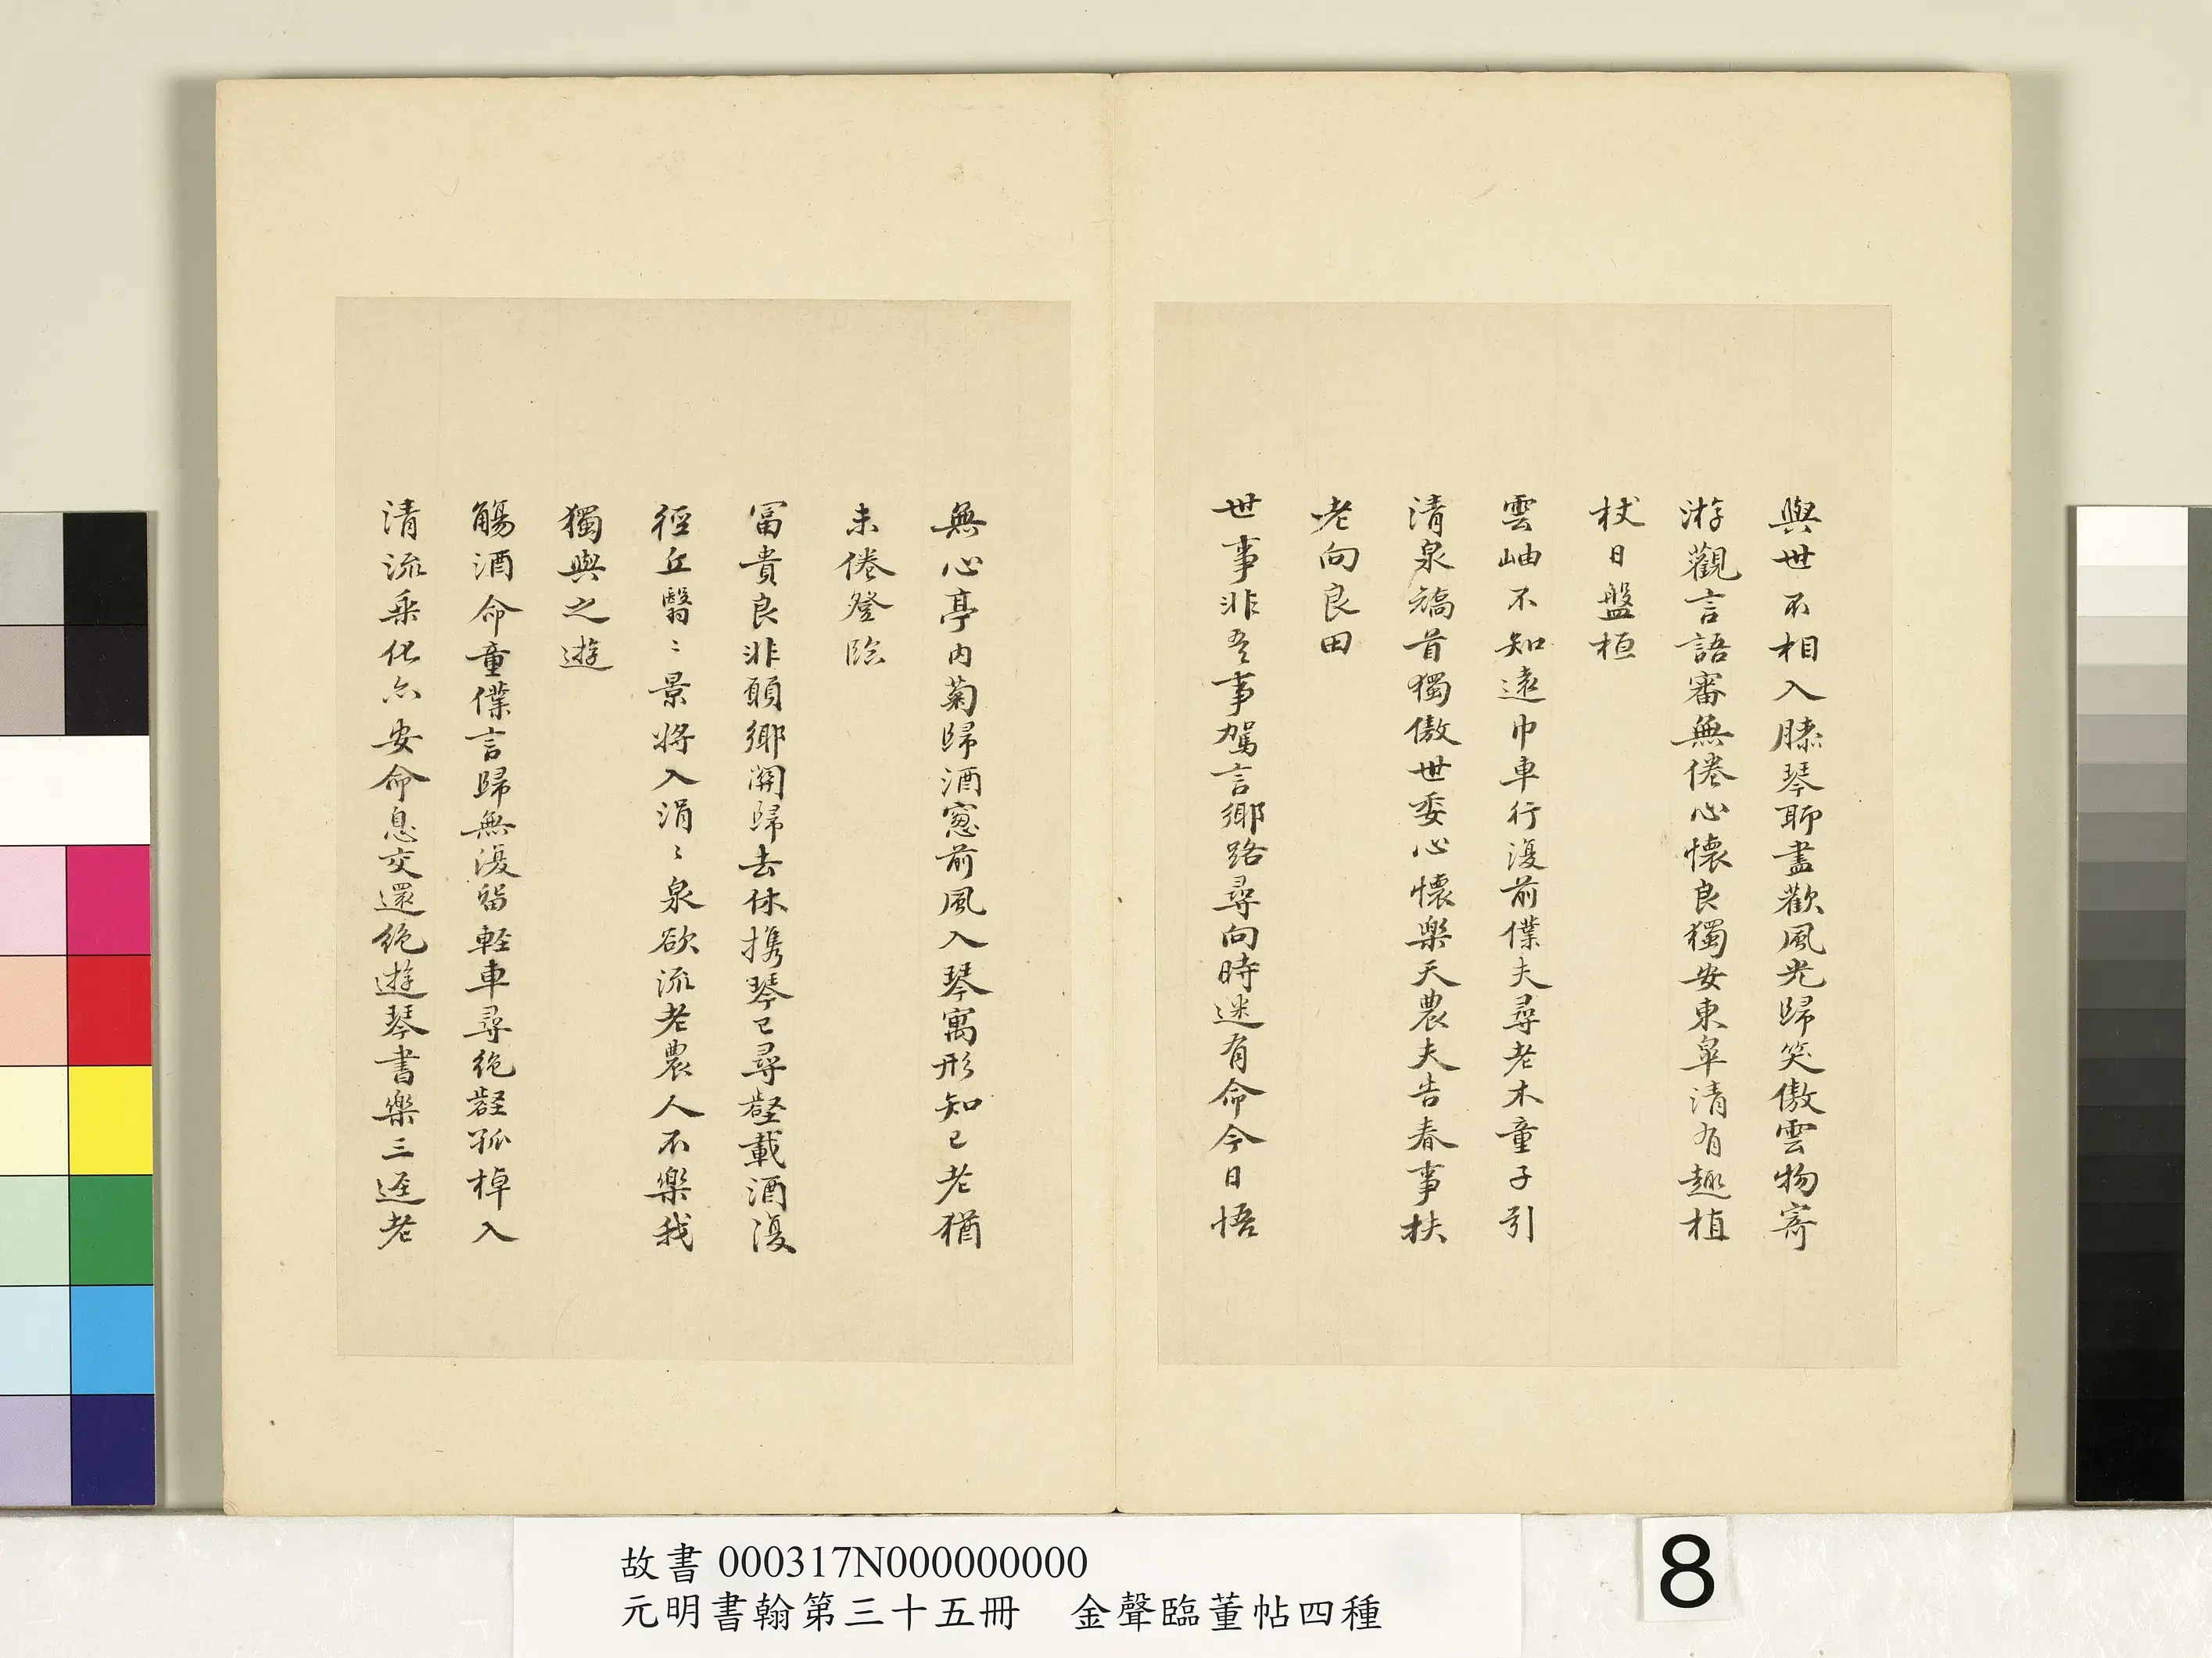 與世不相入膝琴聊盡歡風光歸笑傲雲物寄
游觀言語審無倦心懷良獨安東皐清有趣植
杖日盤桓
雲岫不知遠巾車行復前僕夫尋老木童子引
清泉矯首獨傲世委心懷樂天農夫告春事扶
老向良田
世事非吾事駕言鄉路尋向時迷有命今日悟
無心亭内菊歸酒窻前風入琴寓形知已老猶
未倦登臨
富貴良非願鄉關歸去休攜琴已尋壑載酒復
徑丘翳〻景將入涓〻泉欲流老農人不樂我
獨與之遊
觴酒命童僕言歸無復留輕車尋絶壑孤棹入
清流乘化亦安命息交還絶遊琴書樂三逕老
故書 000317N000000000
元明書翰第三十五冊 金聲臨董帖四種
8